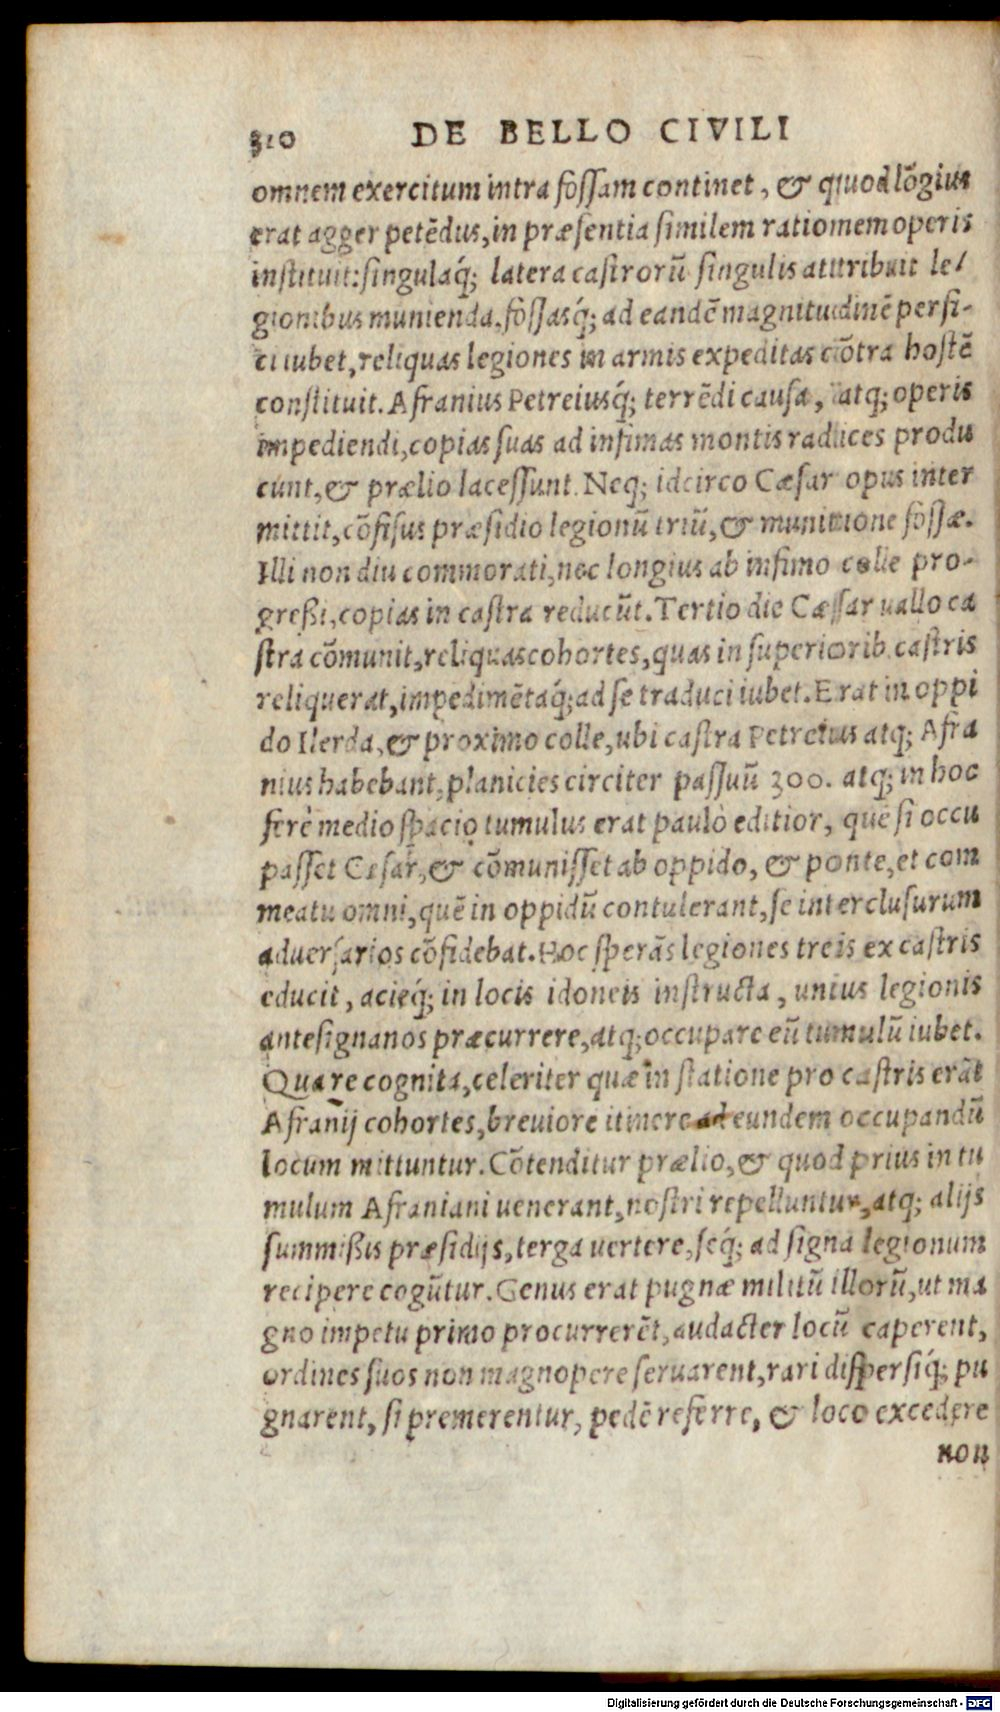 310 DE BELLO CIVILI
omnem exercitum intra fossam continet, & quod lōgius
erat agger petēdus, in præsentia similem rationem operis
instituit: singulaq́; latera castrorū singulis attribuit le/
gionibus munienda. fossasq́; ad eandē magnitudinē perfi-
ci iubet, reliquas legiones in armis expeditas cōtra hostē
constituit. Afranius Petreiusq́; terrēdi causa, atq; operis
impediendi, copias suas ad infimas montis radices produ
cunt, & prælio lacessunt. Neq; idcirco Cæsar opus inter
mittit, cōfisus præsidio legionū triū, & munitione fossæ.
Illi non diu commorati, nec longius ab infimo colle pro-
greßi, copias in castra reducūt. Tertio die Cæsar uallo ca
stra cōmunit, reliquas cohortes, quas in superiorib. castris
reliquerat, impedimētaq́; ad se traduci iubet. Erat in oppi
do Ilerda, & proximo colle, ubi castra Petreius atq; Afra
nius habebant, planicies circiter passuū 300. atq; in hoc
ferè medio spacio tumulus erat paulò editior, quē si occu
passet Cæsar, & cōmunisset ab oppido, & ponte, et com
meatu omni, quē in oppidū contulerant, se interclusurum
aduersarios cōfidebat. Hoc sperās legiones treis ex castris
educit, acieq́; in locis idoneis instructa, unius legionis
antesignanos præcurrere, atq; occupare eū tumulū iubet.
Qua re cognita, celeriter quæ in statione pro castris erāt
Afranij cohortes, breuiore itinere ad eundem occupandū
locum mittuntur. Cōtenditur prælio, & quod prius in tu
mulum Afraniani uenerant, nostri repelluntur, atq; alijs
summißis præsidijs, terga uertere, seq́; ad signa legionum
recipere cogūtur. Genus erat pugnæ militū illorū, ut ma
gno impetu primo procurrerēt, audacter locū caperent,
ordines suos non magnopere seruarent, rari dispersiq́; pu
gnarent, si premerentur, pedē referre, & loco excedere
non
Digitalisierung gefördert durch die Deutsche Forschungsgemeinschaft - DFG